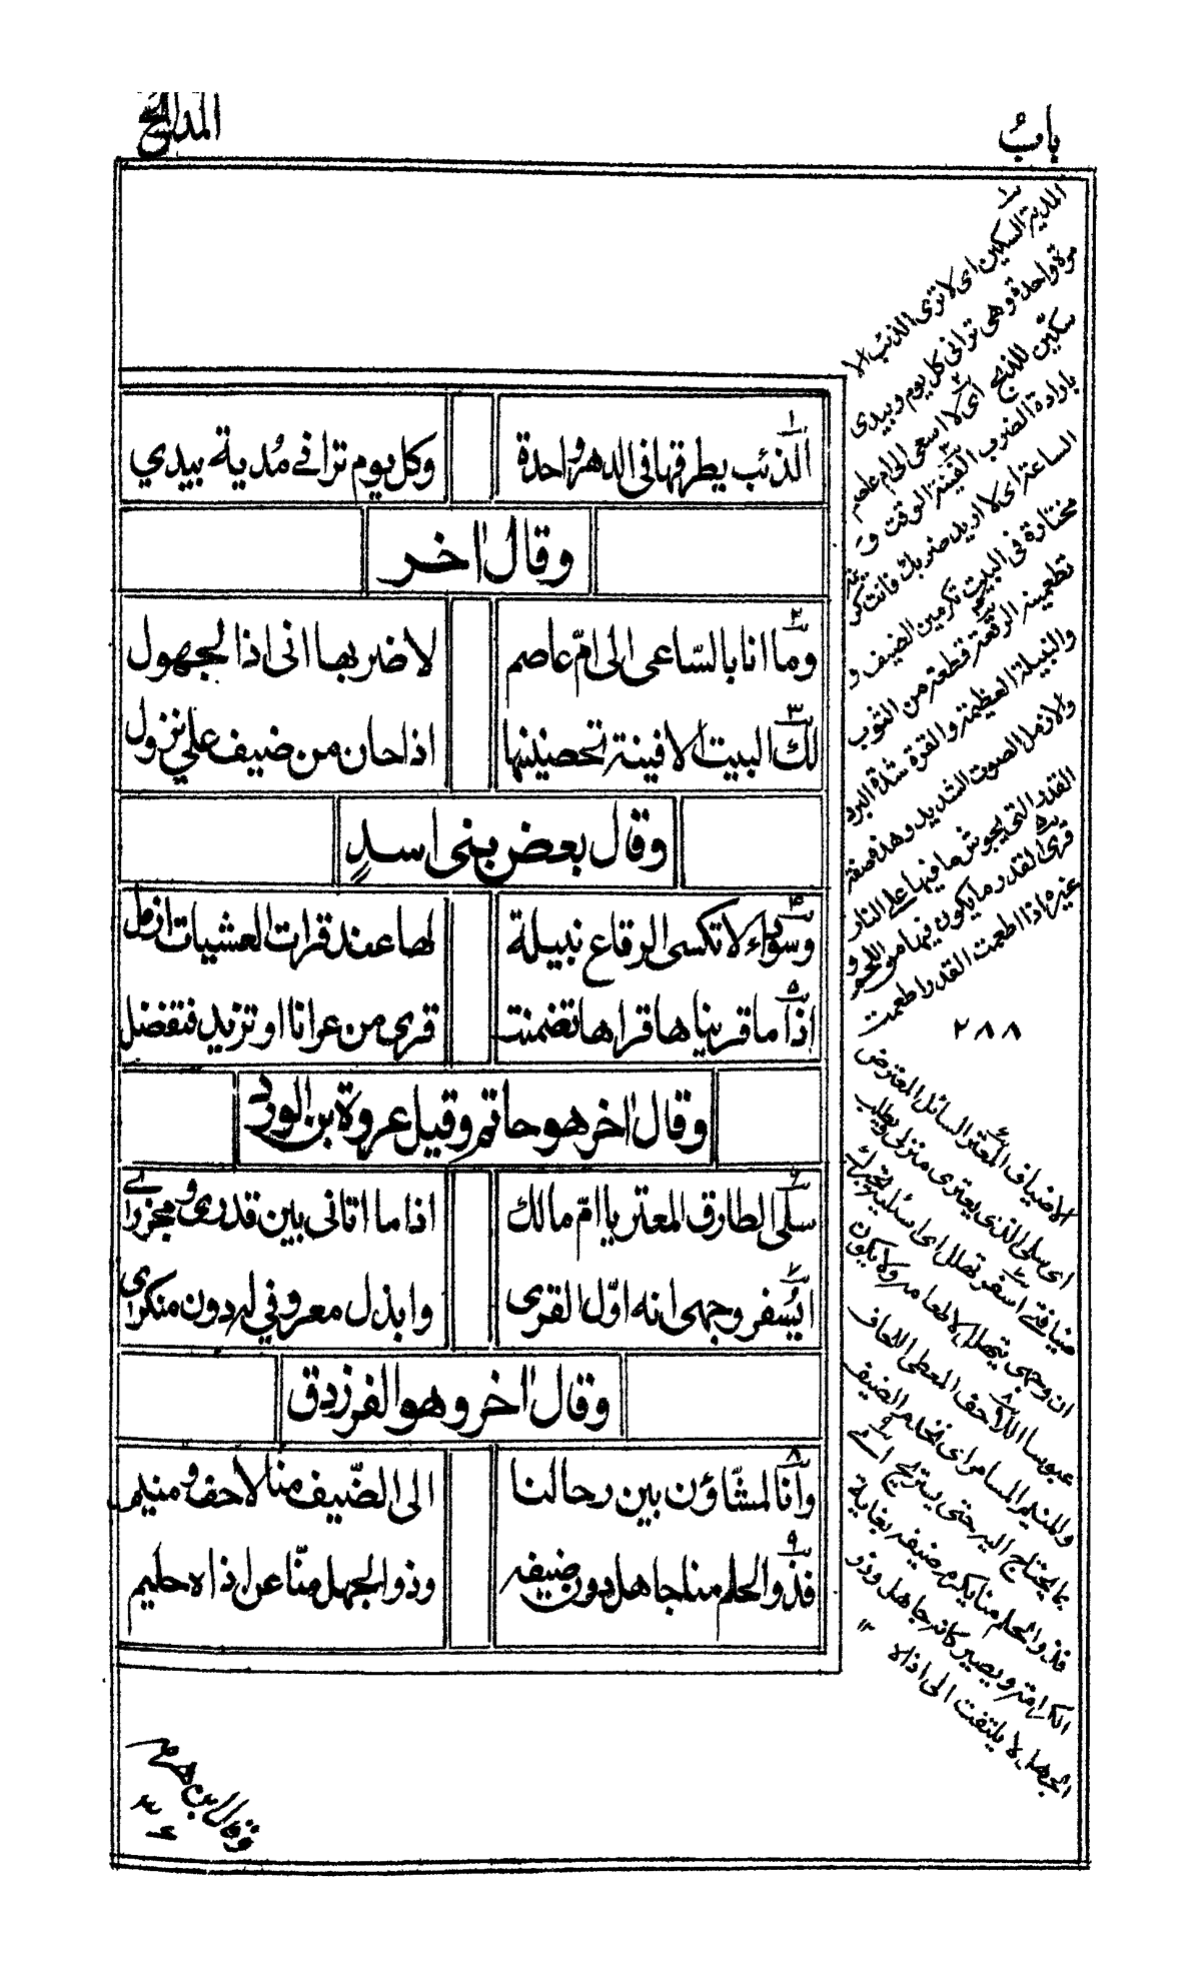 باب المدائح
الذئب يطرقها في الدهر واحدة وكل يوم تراني مُدية بيدي
وقال اخر
وما انا بالسّاعى الى امّ عاصم لاضربها انى اذا لجهول
لك البيت الا فينة تحصنينها اذا حان من ضيف على نزول
وقال بعض بنى اسدٍ
وسوداء لا تكسى الرقاع نبيلة لها عند قرات العشيات ازمل
اذا ما قريناها قراها تضمنت قرى من عرانا او تزيد فتفضل
وقال اخر هو حاتم وقيل عروة بن الورد
سلى الطارق المعتر يا امّ مالك اذا ما اتانى بين قدرى ومجزرى
ايُسفر وجهى انه اوّل القرى وابذل معروفي له دون منكرى
وقال اخر وهو الفرزدق
وانا لمشّاؤن بين رحالنا الى الضّيف منا لاحف ومنيم
فذو الحلم منا جاهل دون ضيفه وذو الجهل منّا عن اذاه حليم
المدية السكين اى لا ترى الذئب الا
مرة واحدة وهى ترانى كل يوم وبيدى
سكين للذبح اى لا اسعى الى ام عاصم
بارادة الضرب الفينة الوقت و
الساعة اى لا اريد ضربك فانت
مختارة فى البيت تكرمين الضيف و
تطعمينه الرقعة قطعة من الثوب
والنبيلة العظيمة والقرة شدة البرد
والازمل الصوت الشديد وهذه صفة
القدر التى يجوش ما فيها على النار
قرى القدر ما يكون فيها من اللحم و
غيره اذا اطعمت القدر اطعمت
۲۸۸
الاضياف المعتر السائل المعترض
اى سلى الذى يعترى منزلى ويطلب
ضيافتى اسفر تهلل اى اسئليه
ان وجهى يتهلل لاطعامه ولا يكون
عبوسا اللاحف المعطى اللحاف
والمنيم المسامر اى نخدم الضيف
بما يحتاج اليه حتى يستريح
فذو الحلم منا يكرم ضيفه بغاية
الكرامة ويصير كانه جاهل وذو
الجهل لا يلتفت الى اذاه ۱۲
وقال ابن هرمة